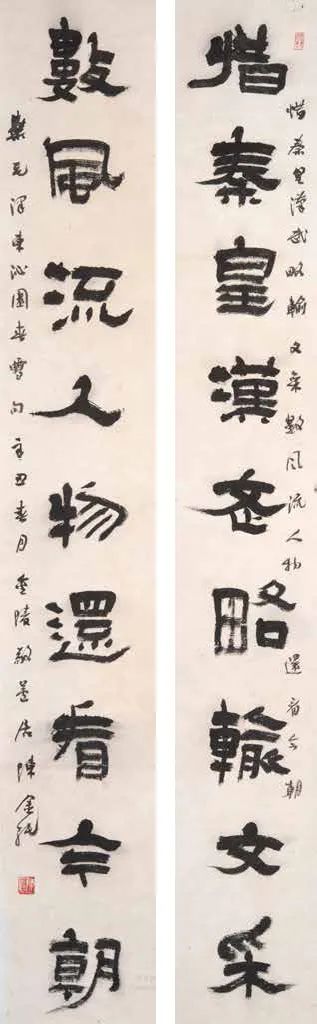 惜秦皇漢武略輸文采數風流人物還看今朝
惜秦皇漢武略輸文采
數風流人物還看今朝
毛澤東沁園春雪句辛丑春月金陵居陳金